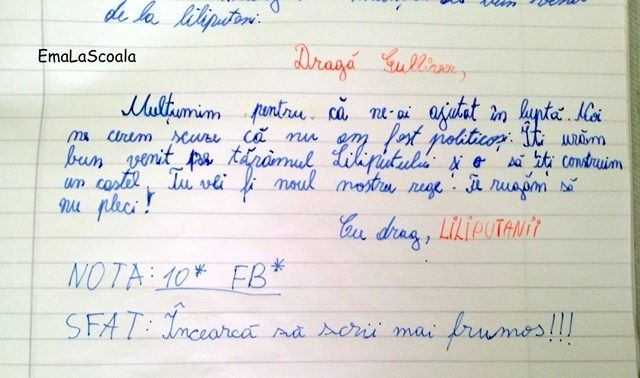 de la liliputani.
EmaLaScoala
Dragă Gulliver,
Mulțumim pentru că ne-ai ajutat în luptă. Noi
ne cerem scuze că nu am fost politicoși. Îți urăm
bun venit pe tărâmul Liliputului și o să îți construim
un castel. Tu vei fi noul nostru rege. Te rugăm să
nu pleci!
Cu drag, LILIPUTANII
NOTA: 10* FB*
SFAT: Încearcă să scrii mai frumos!!!